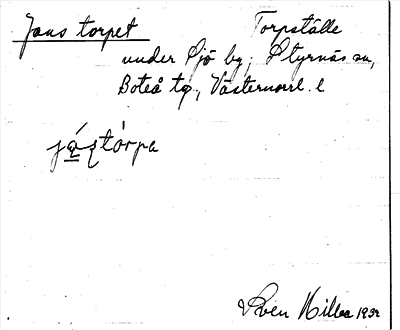 Jans torpet Torpställe
under Sjö by, Styrnäs sn,
Boteå tg., Västernorrl. l
Sven 1932